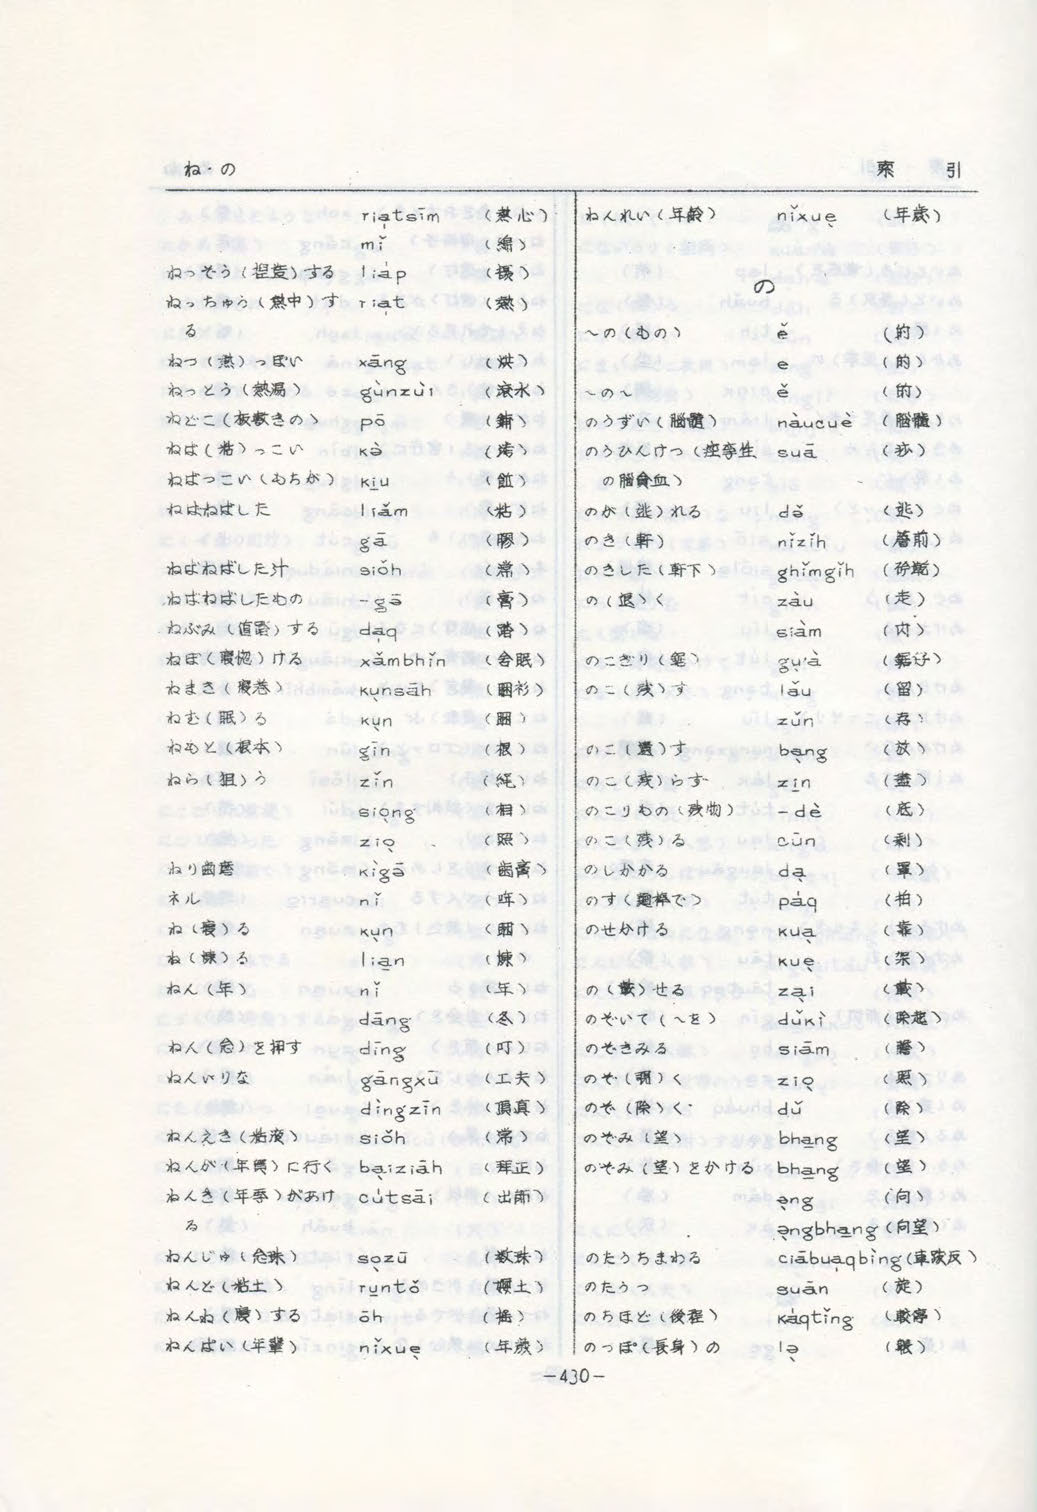 ね・の
索 引
riạtsīm (熱心)
mǐ (綿)
ねっそう(捏造)する liáp (捏)
ねっちゅう(熱中)す riạt (熱)
る
ねつ(熱)っぽい xāng (烘)
ねっとう(熱湯) gùnzùi (滾水)
ねどこ(板敷きの) pō (鋪)
ねば(粘)っこい
ねばっこい(もちが) ḵiu
ねばねばした liǎm (粘)
gā (膠)
ねばねばした汁 siǒh
ねばねばしたもの -gə̄ (膏)
ねぶみ(値踏)する dạq
ねぼ(寝惚)ける xǎmbhǐn (含眠)
ねまき(寝巻) kụnsāh (睏衫)
ねむ(眠)る kụn (睏)
ねもと(根本) gīn (根)
ねら(狙)う zǐn
siọng (相)
ziọ (照)
ねり歯磨 kìgə̄ (歯膏)
ネル nǐ
ね(寝)る kụn (睏)
ね(煉)る liạn (煉)
ねん(年) nǐ (年)
dāng (冬)
ねん(念)を押す dīng (叮)
ねんいりな gāngxū (工夫)
dìngzīn (頂真)
ねんえき(粘液) siǒh
ねんが(年賀)に行く bạiziāh (拜正)
ねんき(年季)があけ cútsāi (出師)
る
ねんじゅ(念珠) sọzū (数珠)
ねんど(粘土) runtǒ
ねんね(寝)する ōh (搖)
ねんぱい(年輩) nǐxuẹ (年歲)
ねんれい(年齢) nǐxuẹ (年歲)
の
~の(もの) ě (的)
e (的)
~の~ ě (的)
のうずい(脳髄) nàucuè (脳髄)
のうひんけつ(痙攣性 suā (痧)
の脳貧血)
のが(逃)れる də̌ (逃)
のき(軒) nǐzǐh (簷前)
のきした(軒下) ghǐmgǐh
の(退)く zàu (走)
siàm (閃)
のこぎり(鋸) gụ'à (鋸仔)
のこ(残)す lǎu (留)
zǔn (存)
のこ(遺)す bạng (放)
のこ(残)らず zịn (盡)
のこりもの(残物) -dè (底)
のこ(残)る cūn (剩)
のしかかる dạ (罩)
のす(麺棒で) páq (拍)
のせかける kuạ
kuẹ (架)
の(載)せる zại (載)
のぞいて(~を) dǔkì (除起)
のぞきみる siām
のぞ(覗)く ziọ (照)
のぞ(除)く dǔ (除)
のぞみ(望) bhạng (望)
のぞみ(望)をかける bhạng (望)
ə̣ng (向)
ə̣ngbhạng (向望)
のたうちまわる ciābuạqbìng (車跋反)
のたうつ suān (旋)
のちほど(後程) káqtǐng (較停)
のっぽ(長身)の lə̣
—430—